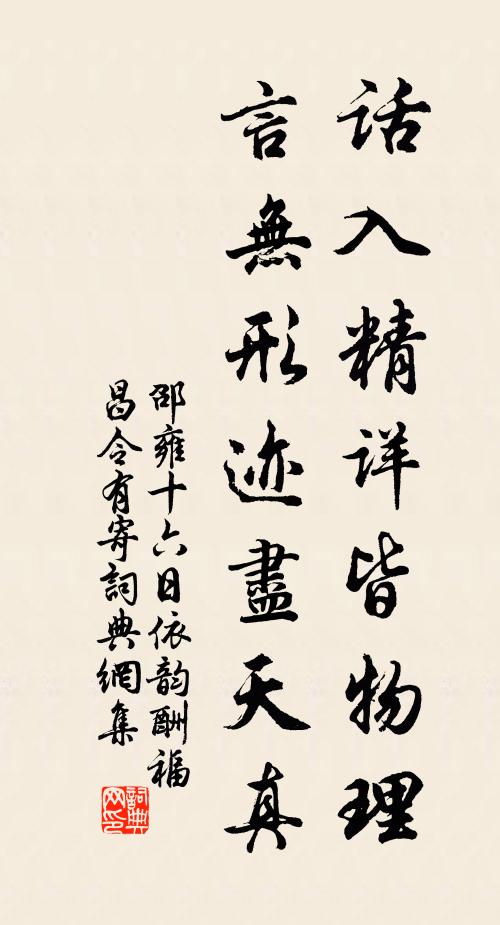 話入精详皆物理
言無形迹盡天真
邵雍十六日依韵酬福
昌令有寄詞典網集
詞典
网印